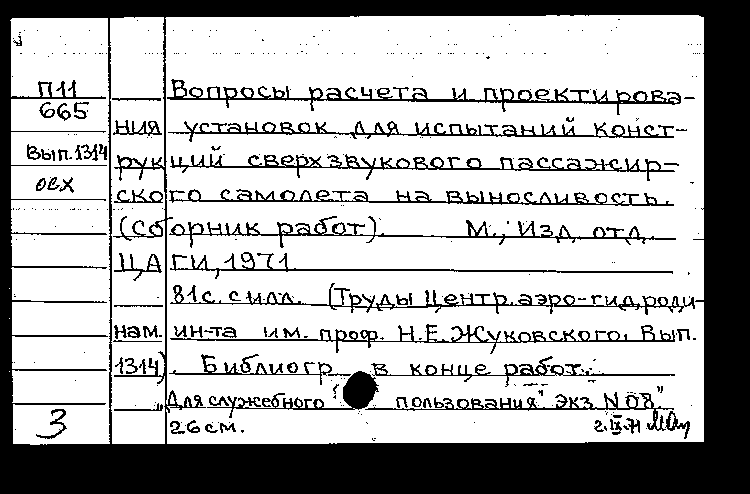 П11 Вопросы расчета и проектирова-
665
ния установок для испытаний конст-
Вып.1314 рукций сверхзвукового пассажир-
осх ского самолета на выносливость.
(Сборник работ). М., Изд. отд.
ЦАГИ, 1971.
81с. с илл. (Труды Центр. аэро-гидроди-
нам. ин-та им. проф. Н.Е.Жуковского. Вып.
1314). Библиогр. в конце работ.
"Для служебного пользования". Экз. N 08"
3 26см. 2.IX.71